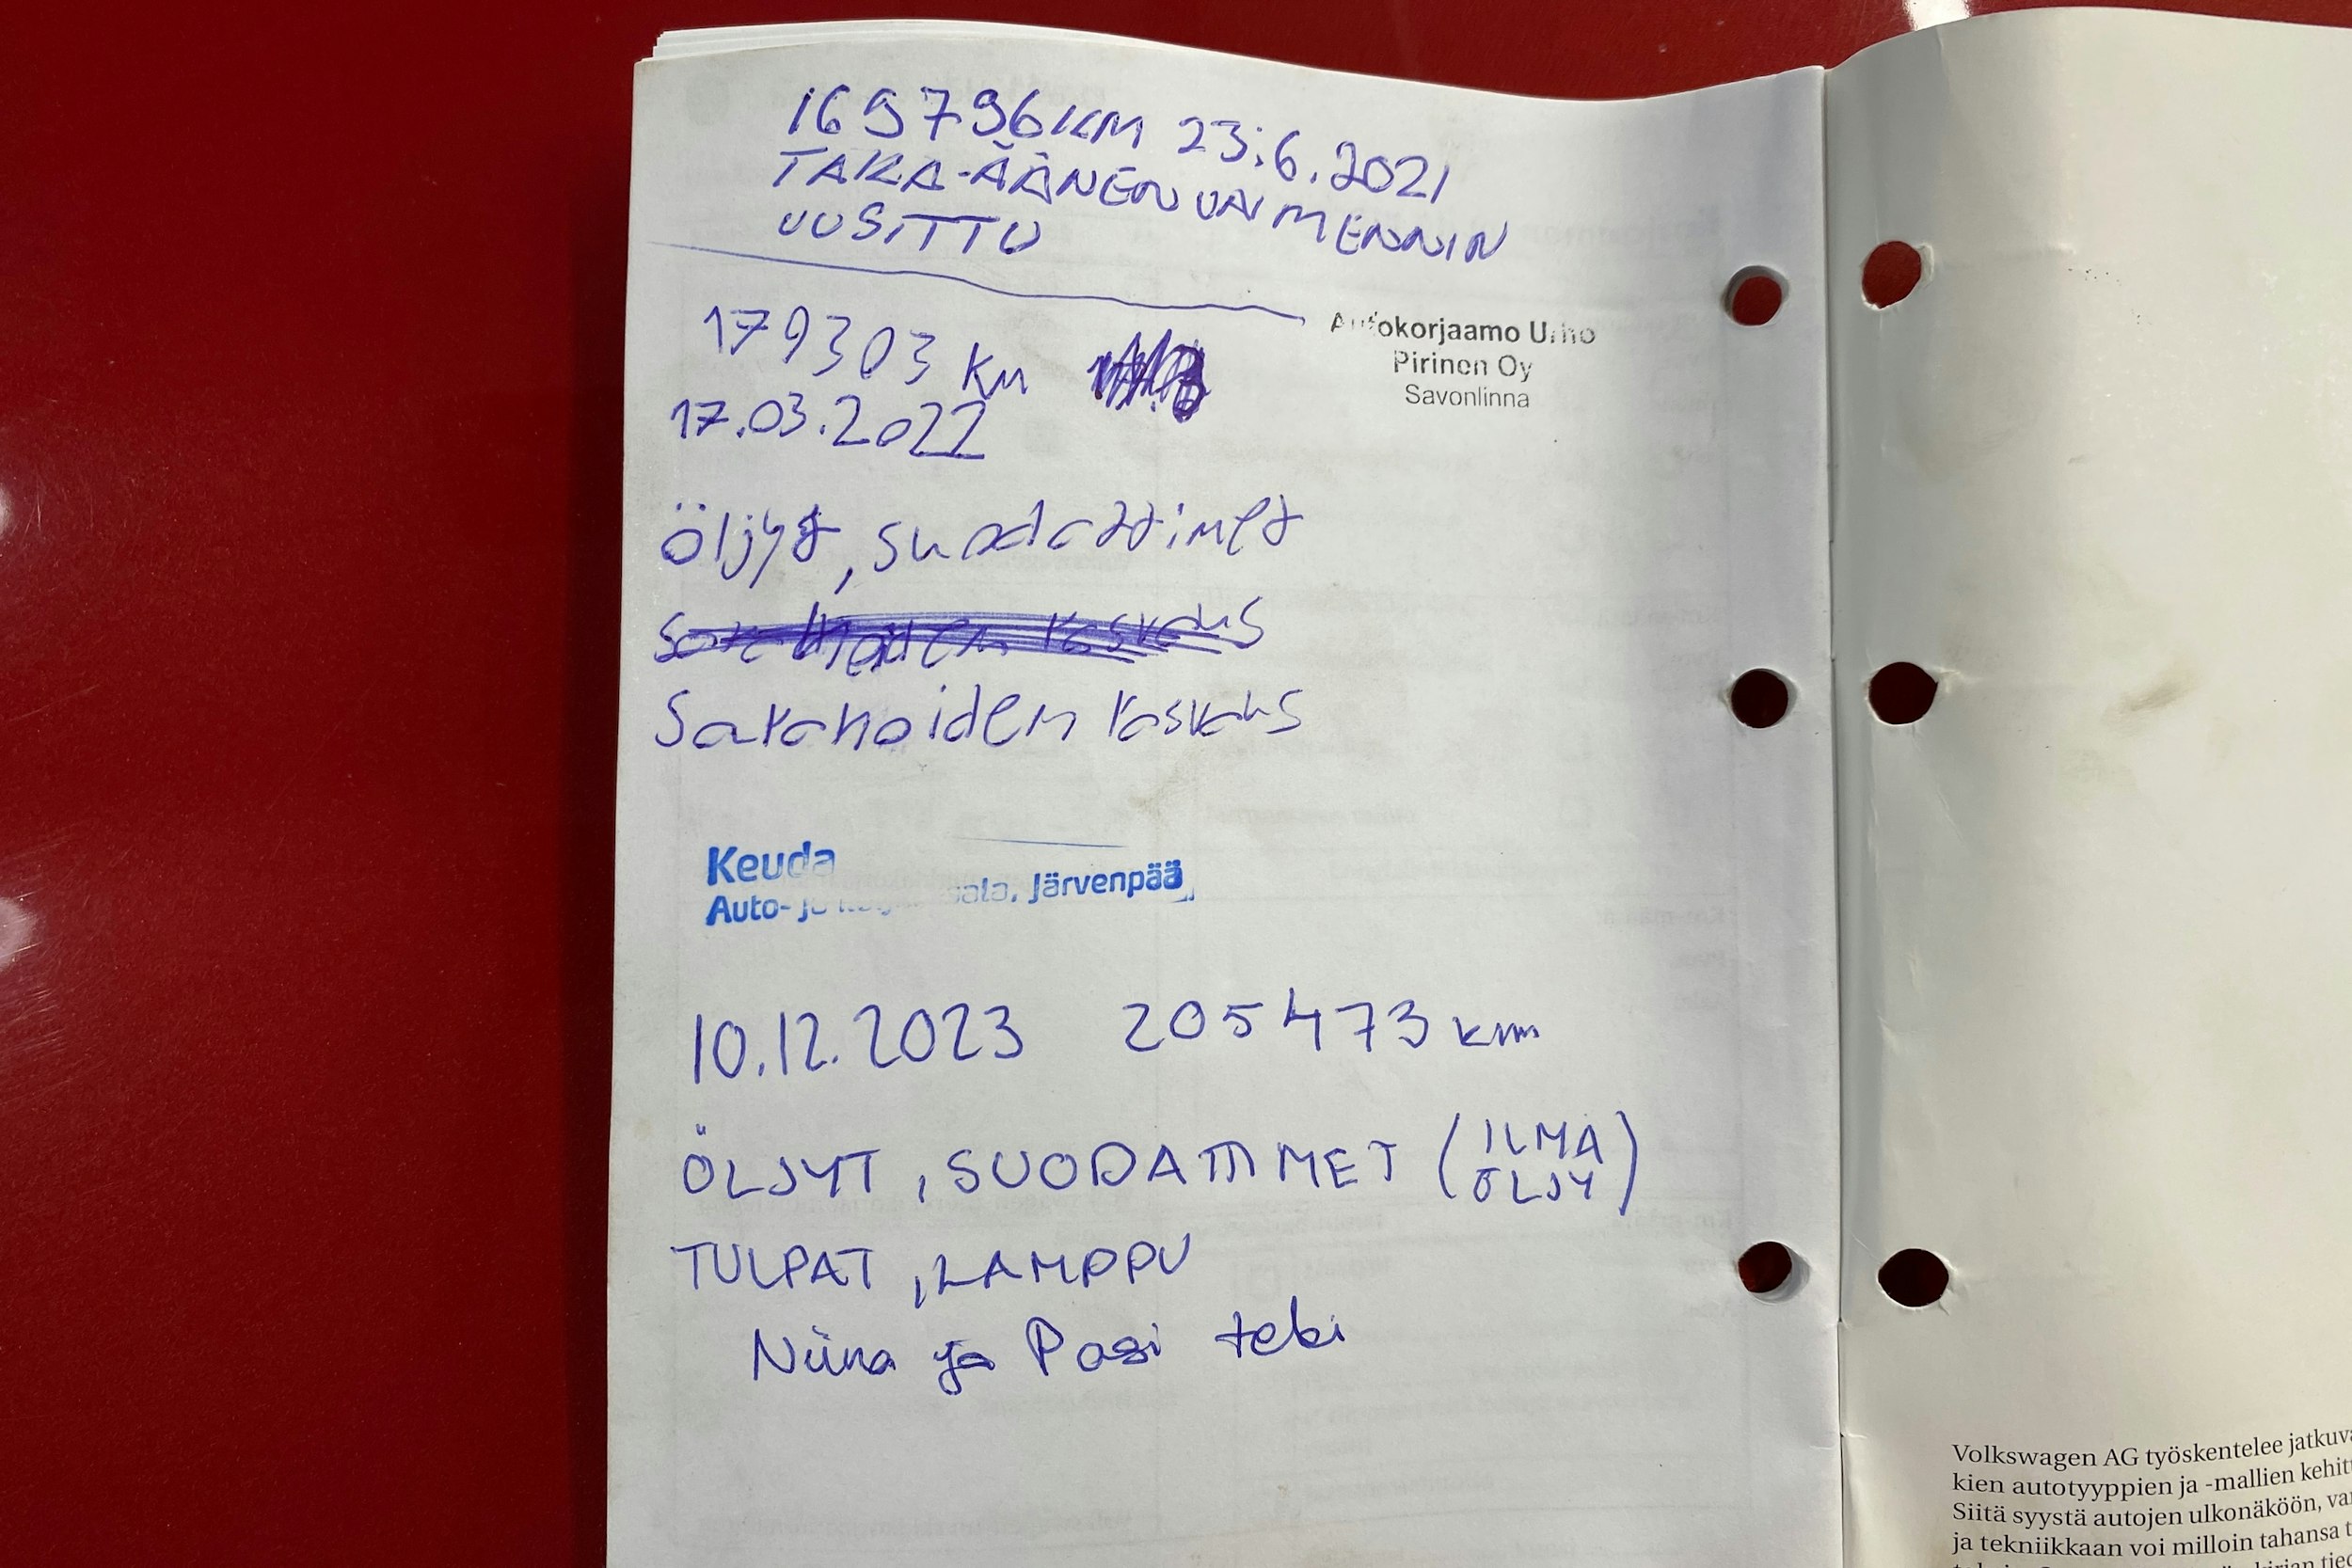 169796KM 23.6.2021
TAKA-ÄÄNENVAIMENNIN
UUSITTU
Autokorjaamo Urho
Pirinen Oy
Savonlinna
179303 km
17.03.2022
öljyt, suodattimet
Satanoiden raskaus
Keuda
Auto- ja Järvenpää
10.12.2023 205473 km
ÖLJYT, SUODATTIMET (ILMA
ÖLJY)
TULPAT, LAMPPU
Niina ja Pasi teki
Volkswagen AG työskentelee
kien autotyyppien ja -mallien
Siitä syystä autojen ulkonäköön,
ja tekniikkaan voi milloin tahansa